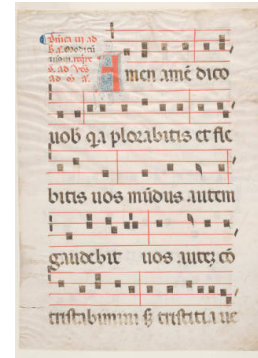 men amē dico
uob̃ q̃a plorabitis et fle
bitis uos mūdus autem
gaudebit uos autez cō
tristabimini s̄ tristitia ue